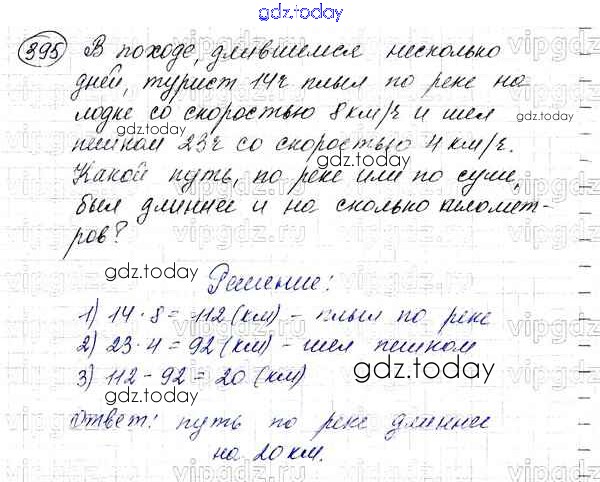 gdz.today
395 В походе, длившемся несколько
дней, турист 14 ч плыл по реке на
лодке со скоростью 8 км/ч и шел
пешком 23 ч со скоростью 4 км/ч.
Какой путь, по реке или по суше,
был длиннее и на сколько километ-
ров?
Решение:
1) 14 · 8 = 112 (км) - плыл по реке
2) 23 · 4 = 92 (км) - шел пешком
3) 112 - 92 = 20 (км)
Ответ: путь по реке длиннее
на 20 км.